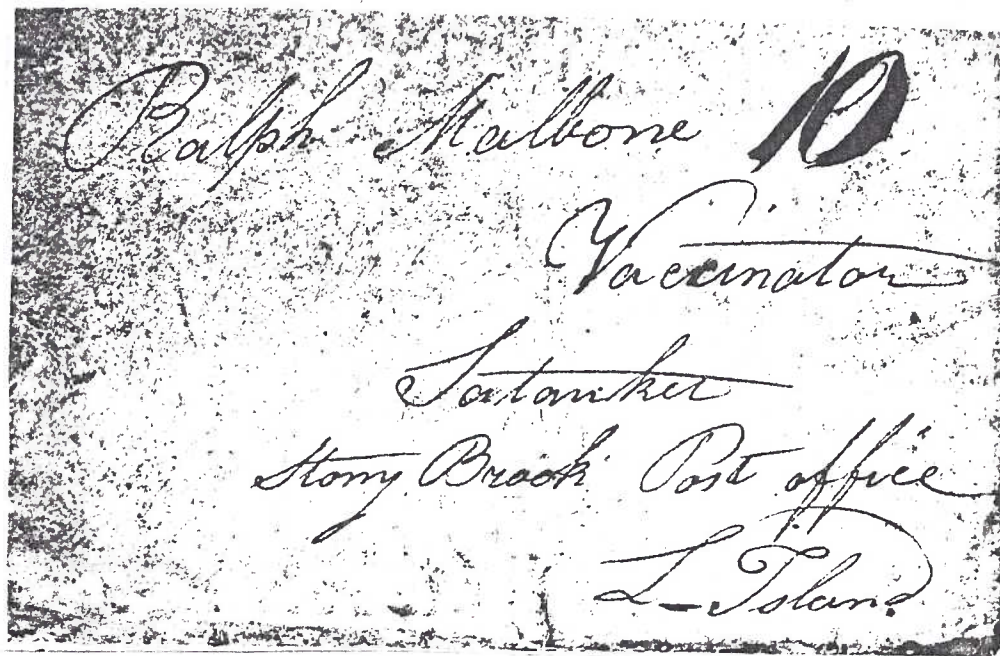 Ralph Malbone 10
Vaccinator
Satauket
Stony Brook Post office
L_ Island